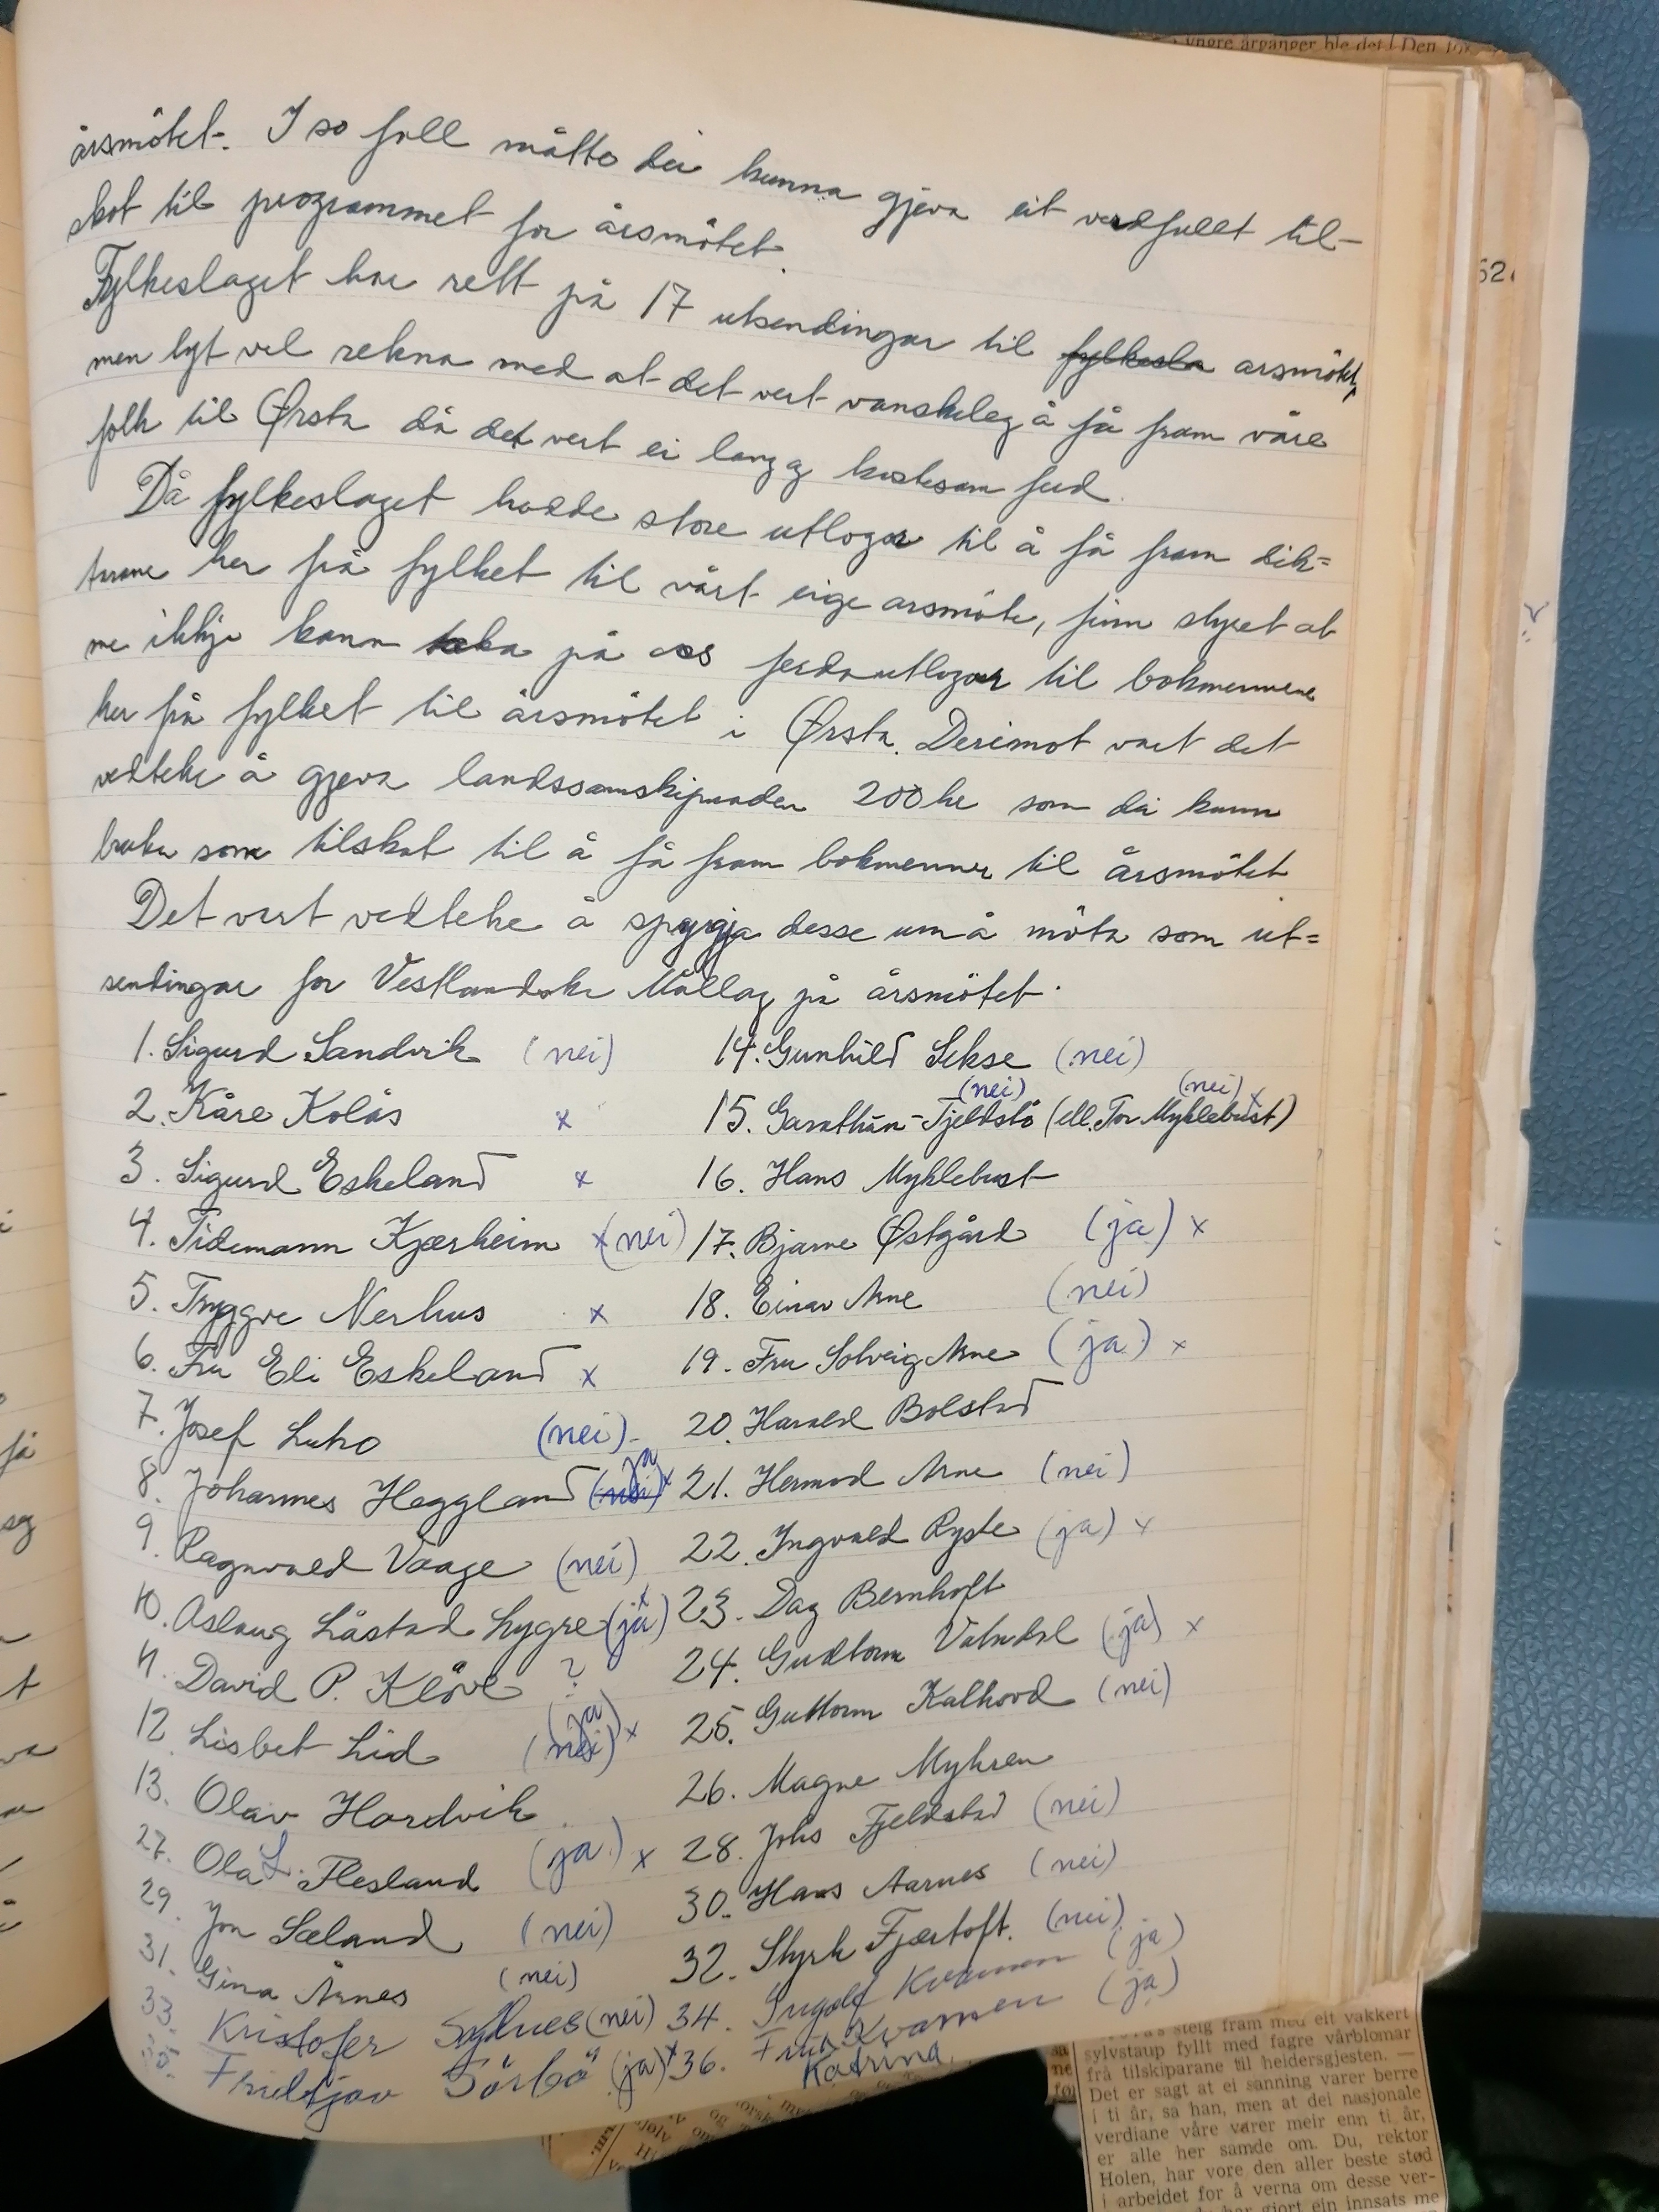 yngre årganger ble det Den
årsmötet. I so fall måtte dei kunna gjeva eit verdfullt til-
skot til programmet for årsmötet.
Fylkeslaget har rett på 17 utsendingar til fylkesla årsmötet,
men lyt vel rekna med at det vert vanskeleg å få fram våre
folk til Ørsta då det vert ei lang og kostesam ferd.
Då fylkeslaget hadde store utlogor til å få fram dik=
tarane her frå fylket til vårt eige årsmöte, finn styret at
me ikkje kann taka på oss ferdautlogor til bokmennene
her frå fylket til årsmötet i Ørsta. Derimot vart det
vedteke å gjeva landssamskipnaden 200 kr som dei kann
bruka som tilskot til å få fram bokmenner til årsmötet
Det vart vedteke å spyrja desse um å möta som ut=
sendingar for Vestlandske Mållag på årsmötet.
1. Sigurd Sandvik (nei)
2. Kåre Kolås x
3. Sigurd Eskeland x
4. Tidemann Kjærheim x (nei)
5. Tryggve Nerhus x
6. Fru Eli Eskeland x
7. Josef Luho (nei)
8. Johannes Heggland (nei) ja x
9. Ragnvald Vaage (nei)
10. Aslaug Låstad Lygre (ja) x
11. David P. Klöve ?
12. Lisbet Lid (nei) (ja) x
13. Olav Hardvik
14. Gunhild Sekse (nei)
15. Garathun-Tjeldstö (nei) (ell. Tor Myklebust) (nei) x
16. Hans Myklebust
17. Bjarne Østgård (ja) x
18. Einar Arne (nei)
19. Fru Solveig Arne (ja) x
20. Harald Bolstad
21. Hermod Arne (nei)
22. Ingvald Ryste (ja) x
23. Dag Bernhoft
24. Gudtorm Vatndal (ja) x
25. Guttorm Kalhovd (nei)
26. Magne Myhren
27. Ola L. Flesland (ja) x
28. Johs Fjeldstad (nei)
29. Jon Sæland (nei)
30. Hans Aarnes (nei)
31. Gina Årnes (nei)
32. Styrk Fjærtoft. (nei)
33. Kristofer Sydnes (nei)
34. Ingolf Kvamen (ja)
35. Fridtjov Sörbö (ja) x
36. Fru Katrina Kvamen (ja)
steig fram med eit vakkert
sylvstaup fyllt med fagre vårblomar
frå tilskiparane til heidersgjesten. —
Det er sagt at ei sanning varer berre
i ti år, sa han, men at dei nasjonale
verdiane våre varer meir enn ti år,
er alle her samde om. Du, rektor
Holen, har vore den aller beste stød
i arbeidet for å verna om desse ver-
har gjort ein innsats me